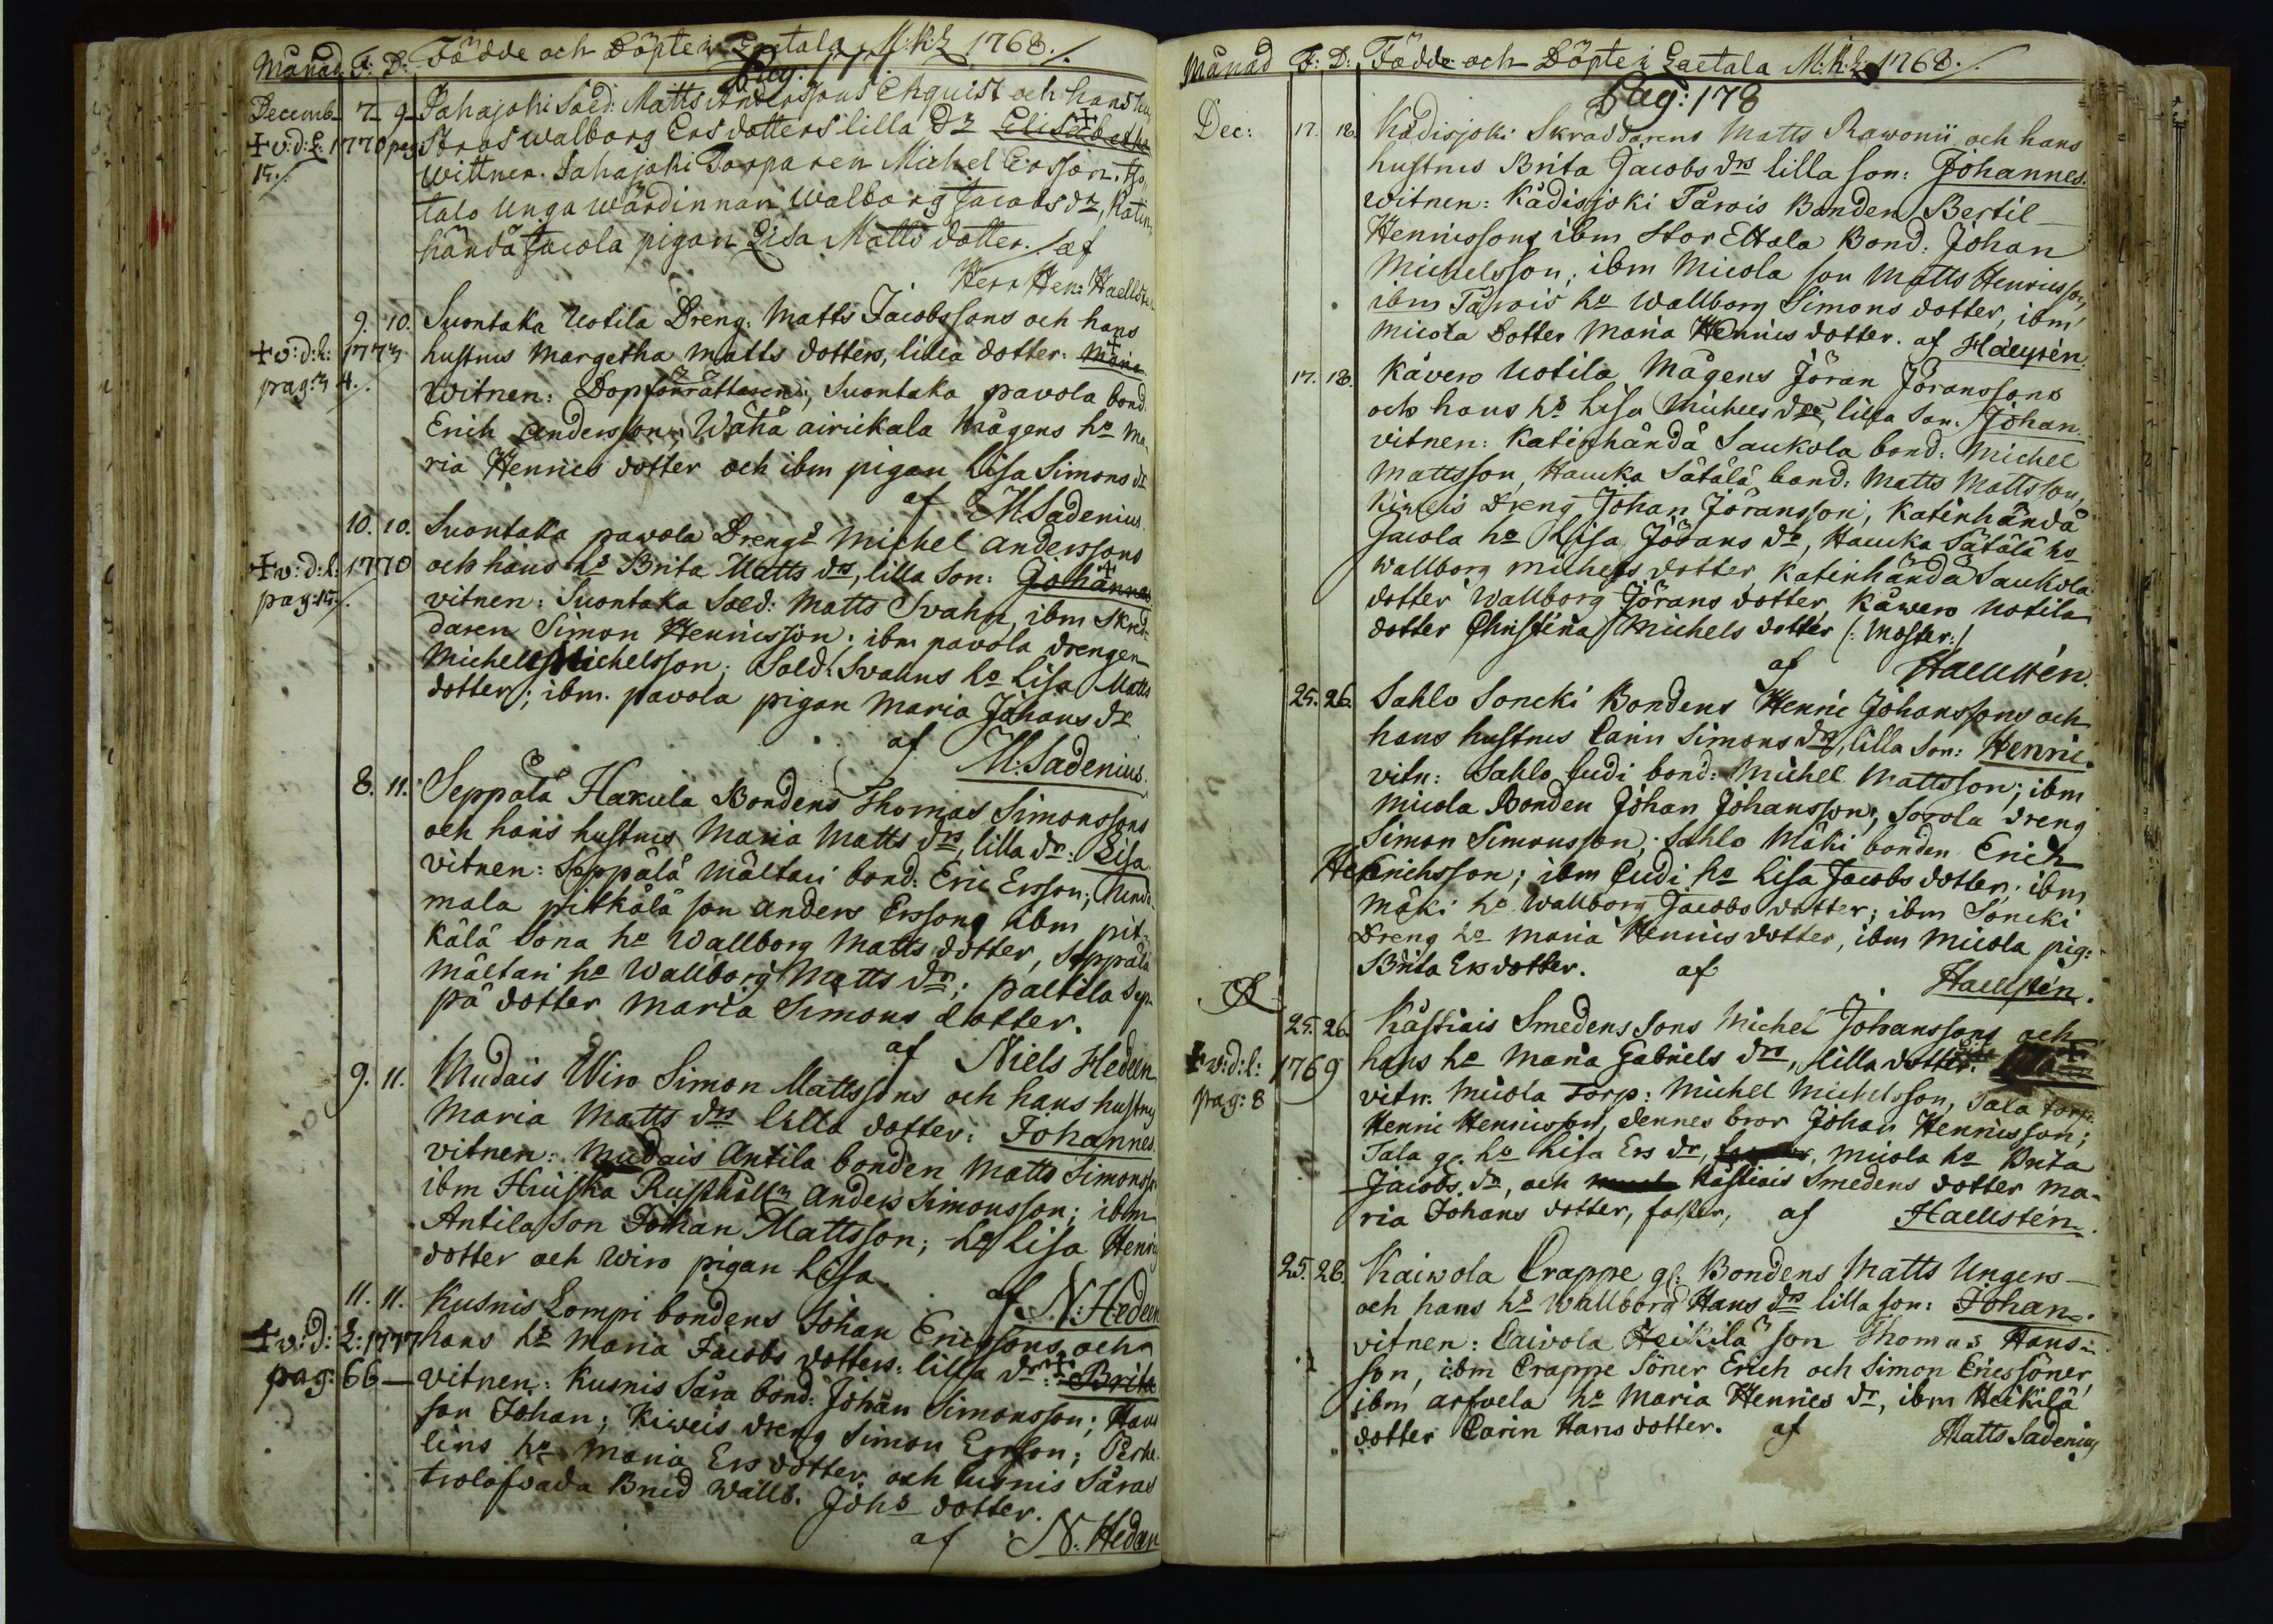 Månad F: D: Födde och Döpte i Laetala M:k:L 1768./.
Pag: 177
Decemb 7 9 Jahajoki Sold: Matts Anderssons Ekquist och hans hu
✝v:d:L: 1770 pag strus walborg Ers dotters lilla Dr Elisabeth
15./. wittnen. Jahajoki Torparen Michel Ersson.
talo unga wärdinnan walborg Jacobs dr, Katin
händä Jacola pigan Lisa Matts dotter. / af
Herr Hen: Haellsten
9. 10. Suontaka Uotila Dreng: Matts Jacobssons och hans
✝v:d:L: 1773 hustrus Margetha Matts dotters, lilla dotter: Maria
pag: 34./. witnen: Dopförrättaren; Suontaka pavola bond
Erich Andersson; Wähä airickala Mågens ho Ma
ria Henrics dotter och ibm pigan Lisa Simons dr
af M. Sadenius.
10. 10. Suontaka pawola Drengs Michel Anderssons
✝v:d:l: 1770 och hans hs Brita Matts drs, lilla Son: Johannes
pag:15./. vitnen: Suontaka Sold: Matts Svahn, ibm Skred-
daren Simon Henricsson; ibm pavola drengen
Michel Michelsson; Sold: Svahns ho Lisa Matts
dotter; ibm. pavola pigan Maria Johans dr
af M: Sadenius.
8. 11. Seppälä Hakula Bondens Thomas Simonssons
och hans hustrus Maria Matts drs, lilla dr: Lisa
vitnen: Seppälä Mältari bond: Eric Ersson; Unda-
mala pitkälä son Anders Ersson, ibm pit-
kälä Sona ho Wallborg Matts dotter, Seppälä
mältari ho Wallborg Matts dr; paltila Sep-
pä dotter Maria Simons dotter.
af Niels Hedeen
9. 11. Mudais Wiro Simon Mattssons och hans hustrus
Maria Matts drs lilla dotter: Johannes.
vitnen: Mudais Antila bonden Matts Simonsson
ibm Huiska Rusthållr Anders Simonsson; ibm
Antila Son Johan Mattsson; ho Lisa Henrics
dotter och Wiro pigan Lisa
af N: Hedeen
11. 11. Kusnis Lompi bondens Johan Ericssons och
✝v:d:L:1777 hans hs Maria Jacobs dotters: lilla dr: Brita
pag: 66 — vitnen: Kusnis Sara bond: Johan Simonsson; Hans
son Johan; Kiweis dreng Simon Ersson;
lins ho Maria Ers dotter och Cusnis Saras
trolofvada Brud Wallb. Johs dotter.
af N. Hedeen
Månad F: D: Födde och Döpte i Laetala M:k:L: 1768./.
Pag: 178
Dec: 17. 18. Kädisjoki Skräddarens Matts Rawonii och hans
hustrus Brita Jacobs drs lilla son: Johannes.
witnen: Kädisjoki Tärvis Bonden Bertil
Henricssons ibm Stor Eltala Bond: Johan
Michelsson; ibm Micola son Matts Henricsson,
ibm Tärvis ho Wallborg Simons dotter, ibm
Micola Dotter Maria Henrics dotter. af Haellstén
17. 18. Kävero Uotila Mågens Jöran Joranssons
och hans hs Lisa Michels drs, lilla Son: Johan.
vitnen: Katinhändä Saukola bond: Michel
Mattsson, Haucka Sätälä bond: Matts Mattsson,
Kiweis Dreng Johan Joransson, Katinhändä
Jacola ho Lisa Jörans dr, Haucka Sätälä ho
Wallborg Michels dotter, Katinhändä Saukola
dotter Wallborg Jörans dotter, Käwero Uotila
dotter Christina Michels dotter (: Moster:)
af Haellstén.
25. 26. Sahlo Soncki Bondens Henric Johanssons och
hans hustrus Carin Simons drs, lilla Son: Henric.
vitn: Sahlo Cudi bond: Michel Mattsson; ibm
Micola Bonden Johan Johansson; Sorola dreng
Simon Simonsson; Sahlo Mäki bonden Erich
Erichsson; ibm Cudi ho Lisa Jacobs dotter; ibm
mäki ho Wallborg Jacobs dotter; ibm Soncki
Dreng ho Maria Henrics dotter, ibm Micola pig:
Brita Ers dotter. af Haellstén.
25. 26. Kästiais Smedens Sons Michel Johanssons och
✝v:d:l: 1769 hans ho Maria Gabriels drs, lilla dotter:
pag: 8 vitn: Micola Torp: Michel Michelsson, Tala torp:
Henric Henricsson, dennes bror Johan Henricsson;
Tala gl. ho Lisa Ers dr, Micola ho Brita
Jacobs dr, och Kästiais Smedens dotter Ma-
ria Johans dotter, faster, af Haellstén.
25. 26. Kaiwola Crappe gl: Bondens Matts Ungers
och hans hs Wallborg Hans drs lilla son: Johan.
vitnen: Caivola Heikilä son Thomas Hans-
son, ibm Crappe Söner Erich och Simon Ericssöner,
ibm arfvela ho Maria Henrics dr, ibm Heikilä
dotter Carin Hans dotter. af Matts Sadenius